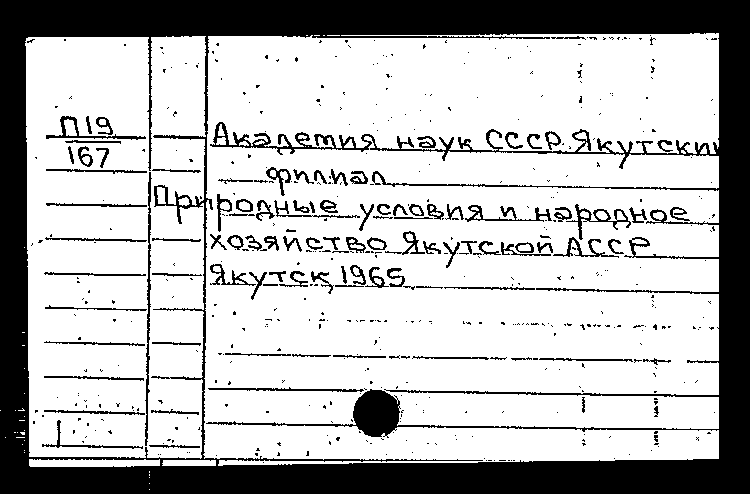 П19
167
Академия наук СССР. Якутский
филиал.
Природные условия и народное
хозяйство Якутской АССР.
Якутск, 1965